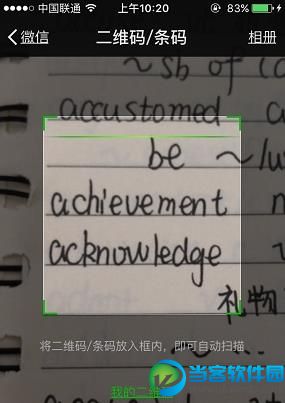 中国联通 上午10:20 83%
微信 二维码/条码 相册
~sb of
accustomed
be ~
achievement
acknowledge
礼物
将二维码/条码放入框内，即可自动扫描
我的二维
当客软件园